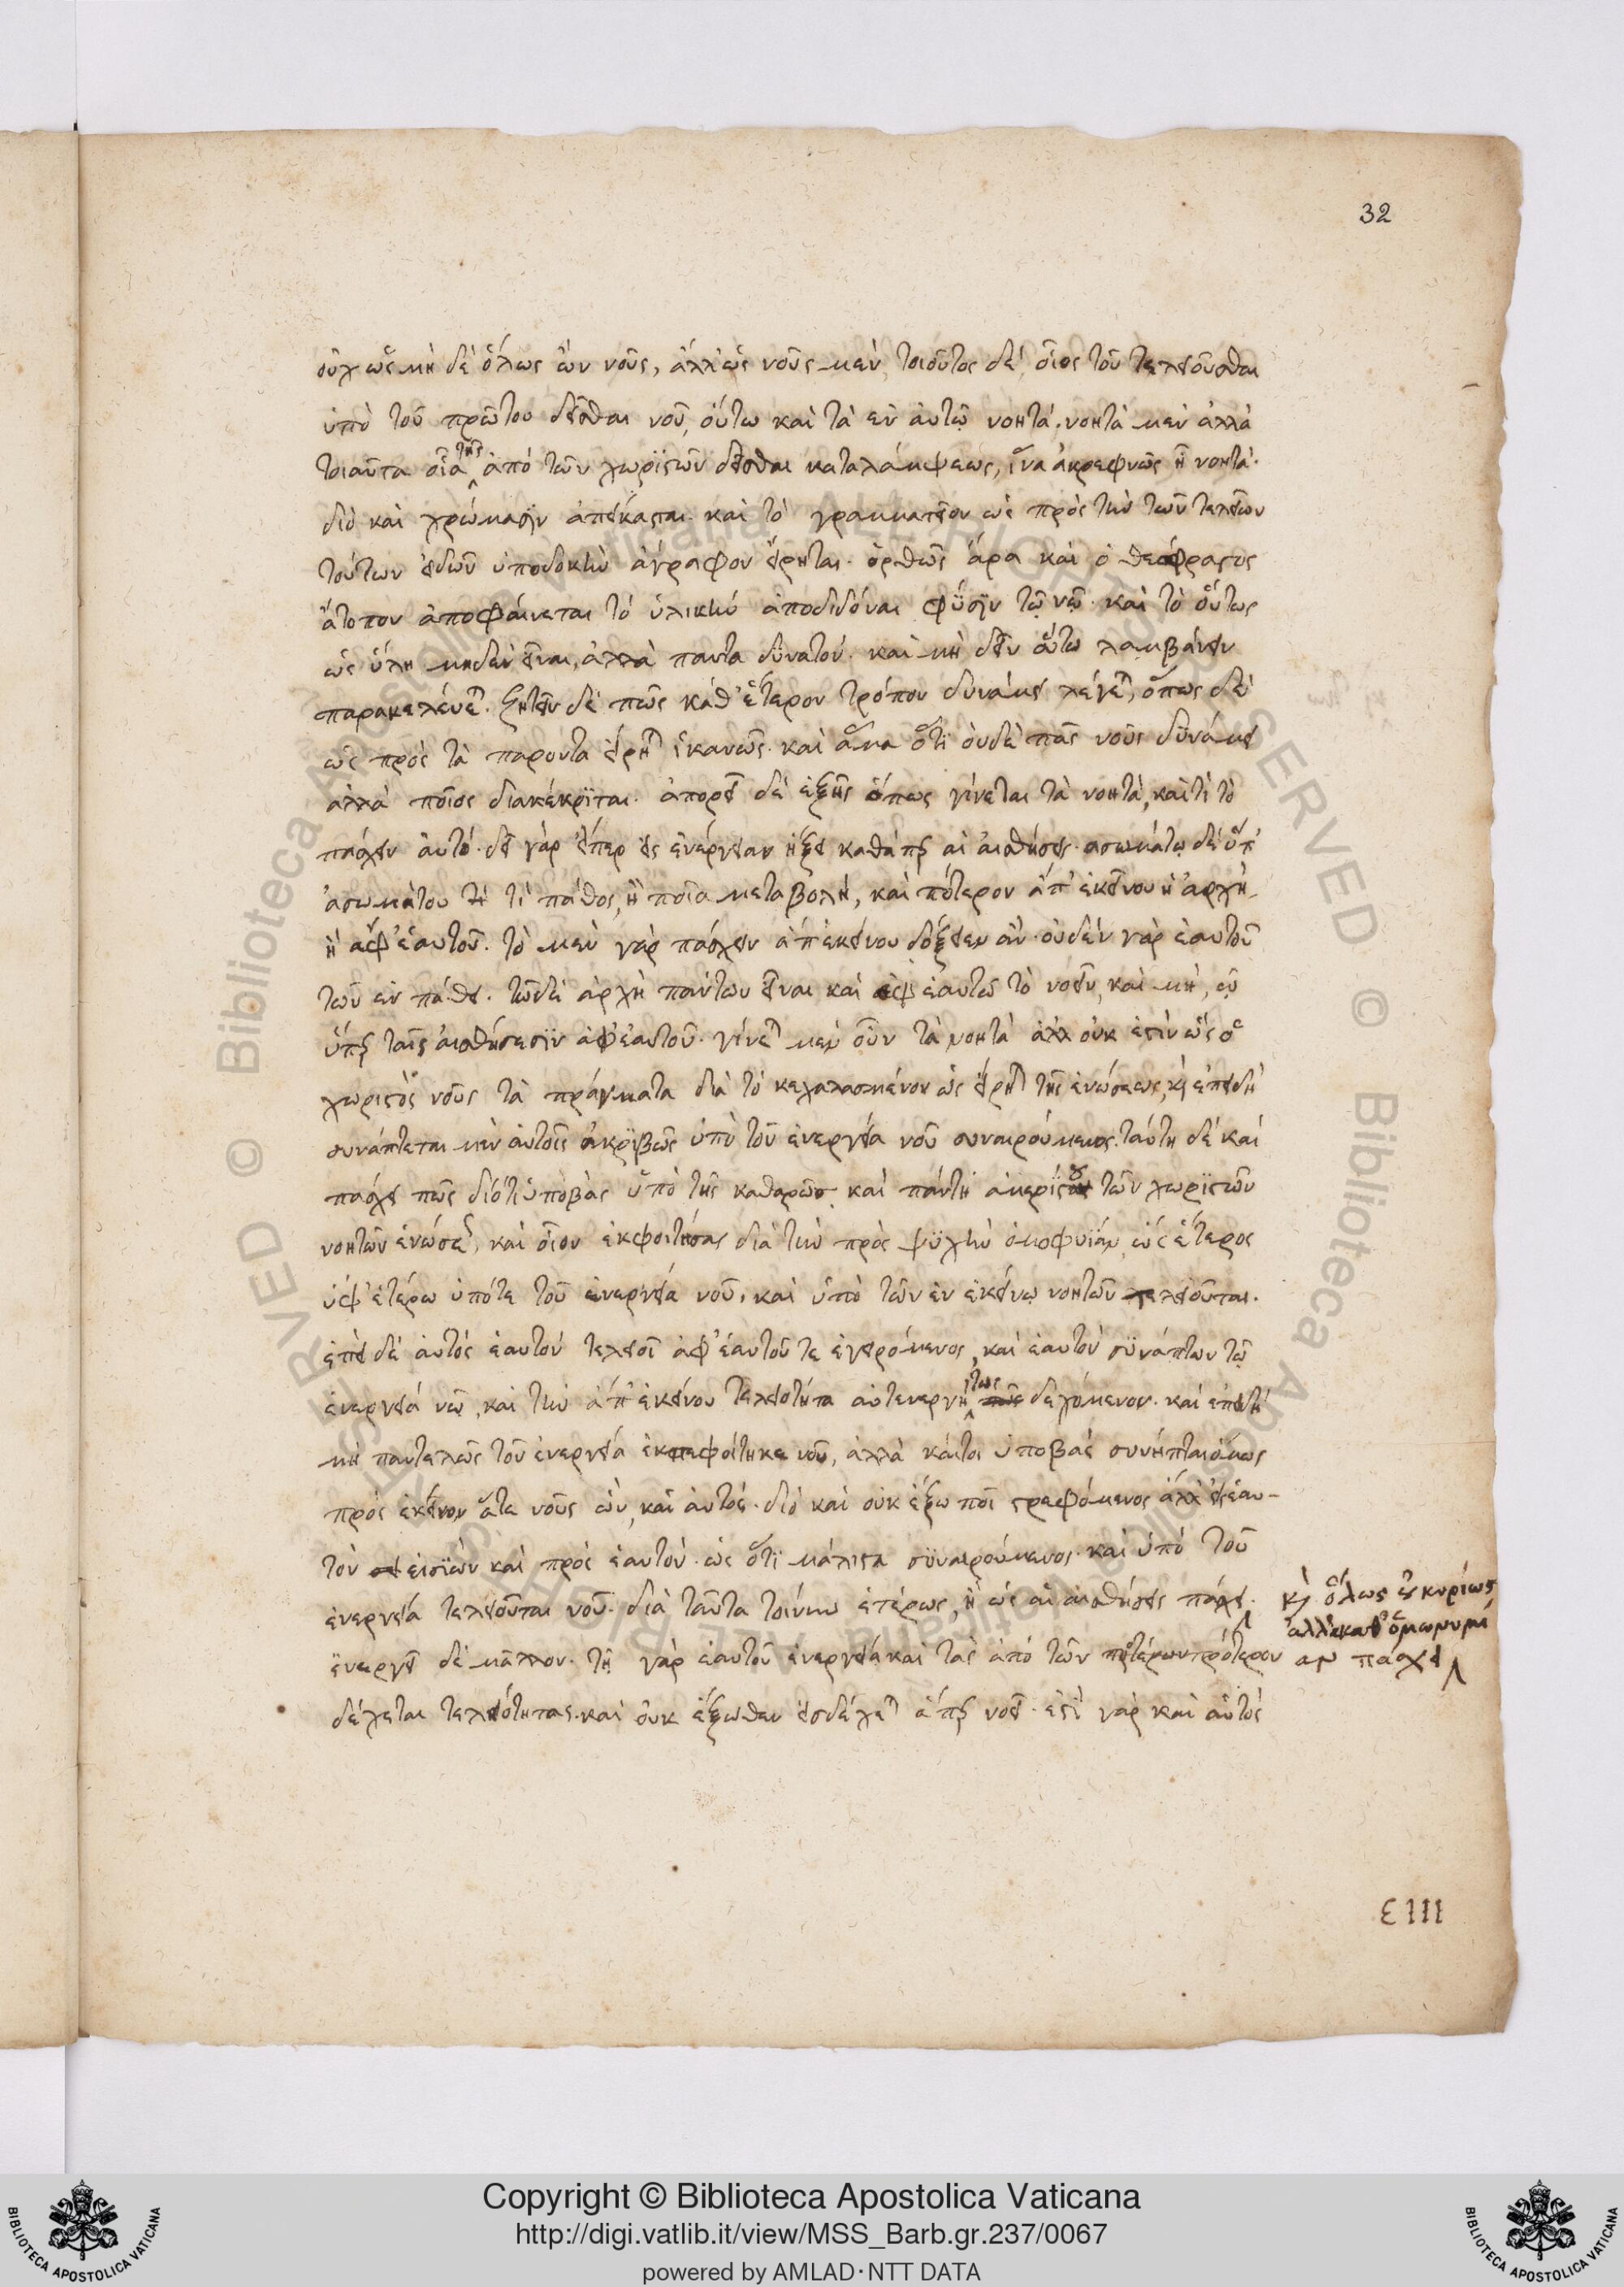 32
οὐχ ὡς μὴ δὲ ὅλως ὢν νοῦς, ἀλλ' ὡς νοῦς μὲν, τοιοῦτος δὲ, οἷος τοῦ τελειοῦσθαι
ὑπὸ τοῦ πρώτου δεῖσθαι νοῦ, οὕτω καὶ τὰ ἐν αὐτῷ νοητά, νοητὰ μὲν ἀλλὰ
τοιαῦτα οἷα τῆς ἀπὸ τῶν χωριστῶν δεῖσθαι καταλάμψεως, ἵνα ἀκραιφνῶς ᾖ νοητά.
διὸ καὶ χρώμασιν ἀπείκασται. καὶ τὸ γραμματεῖον ὡς πρὸς τὴν τῶν τελείων
τούτων εἰδῶν ὑποδοχὴν ἄγραφον εἴρηται. ὀρθῶς ἄρα καὶ ὁ θεόφραστος
ἄτοπον ἀποφαίνεται τὸ ὑλικὴν ἀποδιδόναι φύσιν τῷ νῷ. καὶ τὸ οὕτως
ὡς ὕλη μηδὲν εἶναι, ἀλλὰ πάντα δυνατόν. καὶ μὴ δεῖν οὕτω λαμβάνειν
παρακελεύεται. ζητεῖν δὲ πῶς καθ' ἕτερον τρόπον δυνάμει λέγεται, ὅπως δὲ
ὡς πρὸς τὰ παρόντα εἴρηται ἱκανῶς. καὶ ἅμα ὅτι οὐδὲ πᾶς νοῦς δυνάμει
ἀλλὰ ποῖος διακέκριται. ἀπορεῖ δὲ ἑξῆς ὅπως γίνεται τὰ νοητά, καὶ τί τὸ
πάσχειν αὐτό. δεῖ γὰρ εἴπερ εἰς ἐνέργειαν ἥξει καθάπερ αἱ αἰσθήσεις. ἀσωμάτῳ δὲ ὑπ'
ἀσωμάτου τί πάθος, ἢ ποία μεταβολή, καὶ πότερον ἀπ' ἐκείνου ἡ ἀρχὴ
ἢ ἀφ' ἑαυτοῦ. τὸ μὲν γὰρ πάσχειν ἀπ' ἐκείνου δόξειεν ἄν. οὐδὲν γὰρ ἑαυτοῦ
τῶν ἐν πάθει. τῶ δὲ ἀρχὴ πάντων εἶναι καὶ ἐφ' ἑαυτῶ τὸ νοεῖν, καὶ μὴ,
ὥσπερ ταῖς αἰσθήσεσιν ἀφ' ἑαυτοῦ. γίνεται μὲν οὖν τὰ νοητὰ ἀλλ' οὐκ ἐστὶν ὡς ὁ
χωριστὸς νοῦς τὰ πράγματα διὰ τὸ κεχαλασμένον ὡς εἴρηται τῆς ἑνώσεως, καὶ ἐπειδὴ
συνάπτεται μὲν αὐτοῖς ἀκριβῶς ὑπὸ τοῦ ἐνεργείᾳ νοῦ συναιρούμενος. ταύτη δὲ καὶ
πάσχει πως διότι ὑποβὰς ὑπὸ τῆς καθαρῶς καὶ πάντη ἀμερίστου τῶν χωριστῶν
νοητῶν ἑνώσεως, καὶ οἷον ἐκφοιτήσας διὰ τὴν πρὸς ψυχὴν ὁμοφυΐαν, ὡς ἕτερος
ὑφ' ἑτέρω ὑπό τε τοῦ ἐνεργείᾳ νοῦ, καὶ ὑπὸ τῶν ἐν ἐκείνῳ νοητῶν τελειοῦται.
ἐπεὶ δὲ αὐτὸς ἑαυτὸν τελειοῖ ἀφ' ἑαυτοῦ τε ἐγειρόμενος, καὶ ἑαυτὸν συνάπτων τῷ
ἐνεργείᾳ νῷ, καὶ τὴν ἀπ' ἐκείνου τελειότητα αὐτενεργήτως δεχόμενος. καὶ ἐπειδὴ
μὴ παντελῶς τοῦ ἐνεργείᾳ ἐκπεφοίτηκε νοῦ, ἀλλὰ καίτοι ὑποβὰς συνῆπται ὅμως
πρὸς ἐκεῖνον ἅτε νοῦς ὢν, καὶ αὐτός. διὸ καὶ οὐκ ἔξω ποι στρεφόμενος ἀλλ' εἰς ἑαυ-
τὸν εἰσιὼν καὶ πρὸς ἑαυτόν. ὡς ὅτι μάλιστα συναιρούμενος. καὶ ὑπὸ τοῦ
ἐνεργείᾳ τελειοῦται νοῦ. διὰ ταῦτα τοίνυν ἑτέρως, ἢ ὡς αἱ αἰσθήσεις πάσχει.
καὶ ὅλως οὐ κυρίως
ἀλλὰ καθ' ὁμωνυμί
αν πάσχει
ἐνεργεῖ δὲ μᾶλλον. τῇ γὰρ ἑαυτοῦ ἐνεργείᾳ καὶ τὰς ἀπὸ τῶν προτέρων πρότερον
δέχεται τελειότητας. καὶ οὐκ ἔξωθεν εἰσδέχεται ἅπερ νοεῖ. ἐστὶ γὰρ καὶ αὐτὸς
ε ΙΙΙ
Copyright © Biblioteca Apostolica Vaticana
http://digi.vatlib.it/view/MSS_Barb.gr.237/0067
powered by AMLAD·NTT DATA
BIBLIOTECA APOSTOLICA VATICANA
BIBLIOTECA APOSTOLICA VATICANA